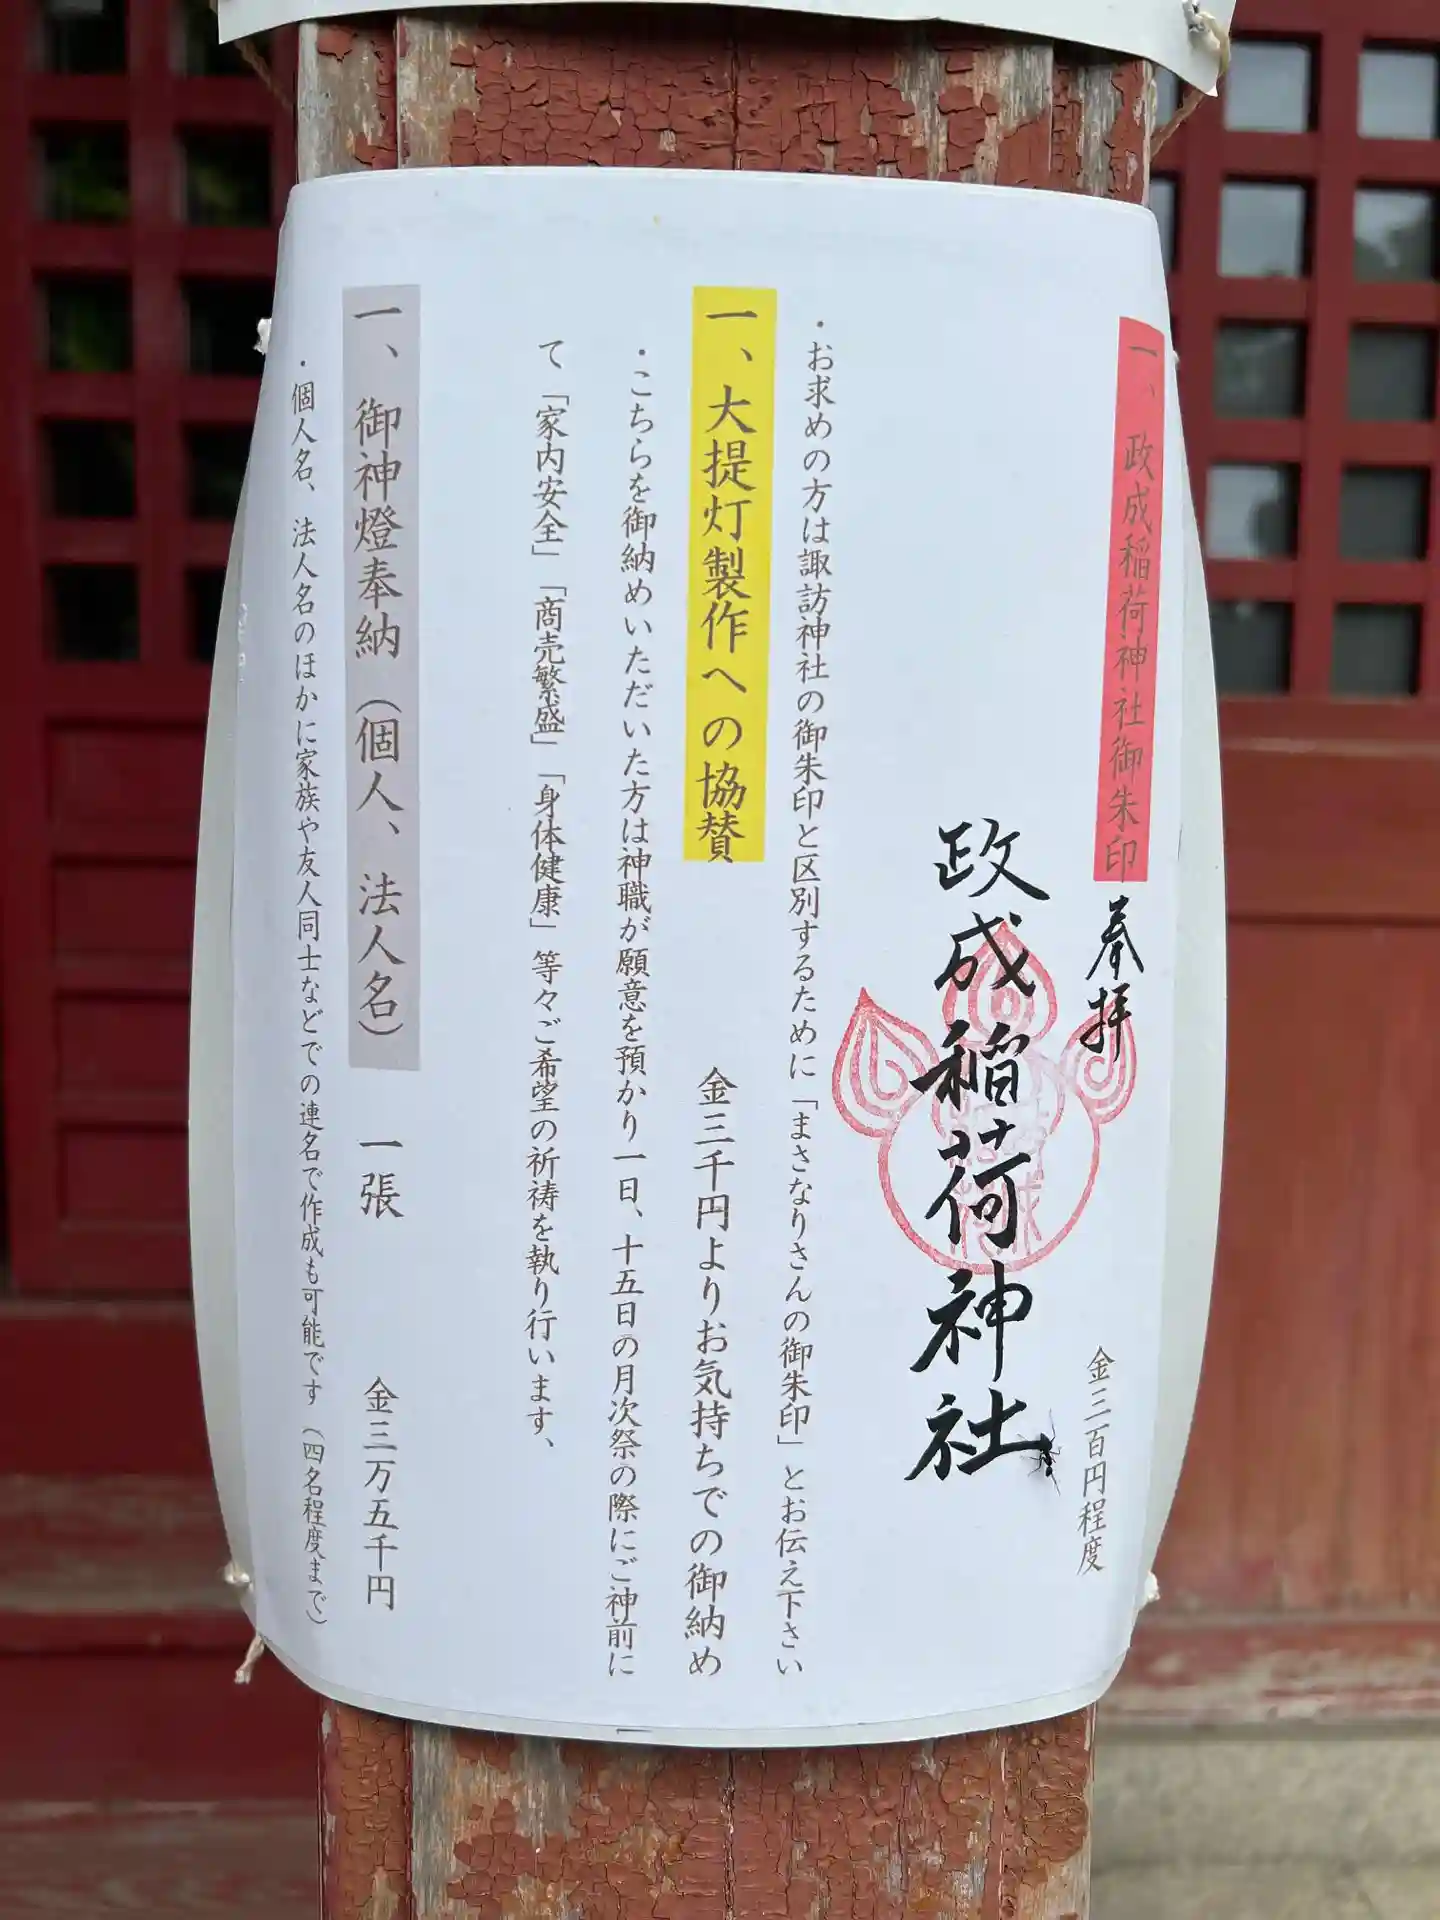 一、政成稲荷神社御朱印
金三百円程度
奉拝
政成稲荷神社
・お求めの方は諏訪神社の御朱印と区別するために「まさなりさんの御朱印」とお伝え下さい
一、大提灯製作への協賛　金三千円よりお気持ちでの御納め
・こちらを御納めいただいた方は神職が願意を預かり一日、十五日の月次祭の際にご神前に
て「家内安全」「商売繁盛」「身体健康」等々ご希望の祈祷を執り行います、
一、御神燈奉納（個人、法人名）　一張　金三万五千円
・個人名、法人名のほかに家族や友人同士などでの連名で作成も可能です（四名程度まで）